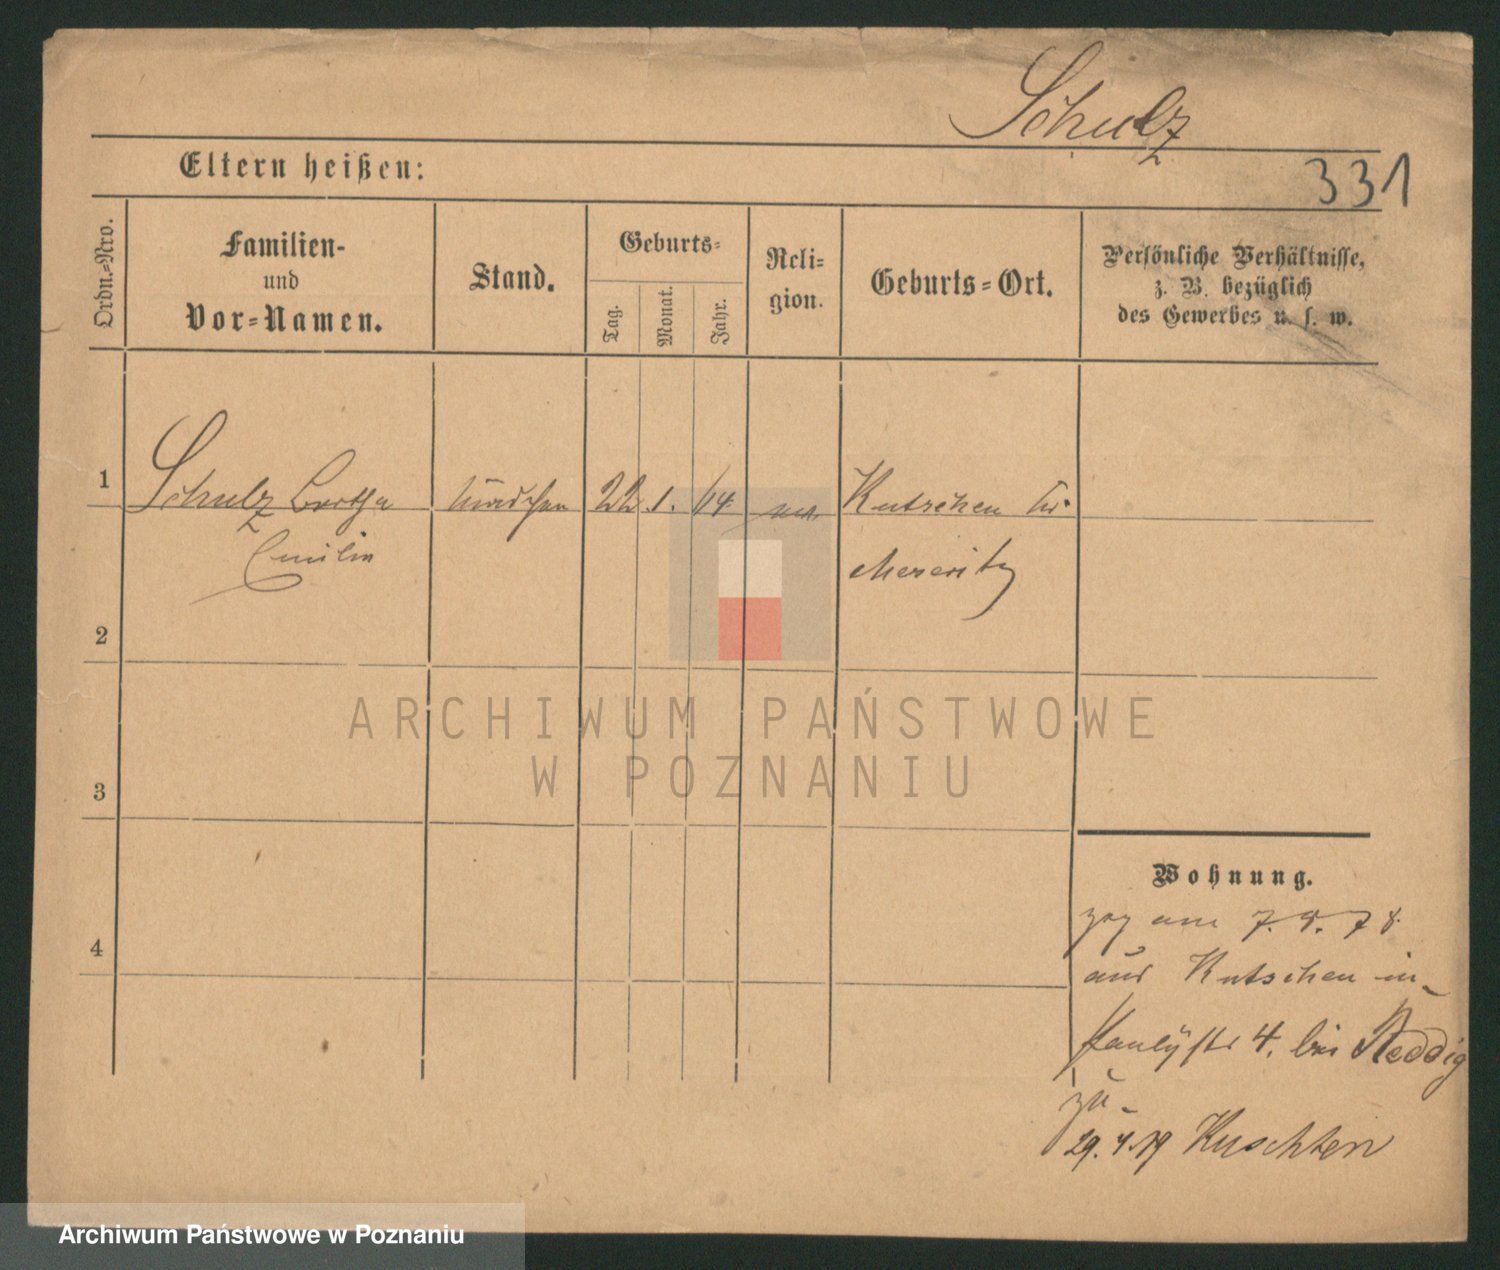 Schulz
331
Eltern heißen:
Ordn.-Nro.
Familien-
und
Vor-Namen.
Stand.
Geburts-
Tag.
Monat.
Jahr.
Reli-
gion.
Geburts-Ort.
Persönliche Verhältnisse,
z. B. bezüglich
des Gewerbes u. s. w.
1
Schulz Bertha
Emilie
Mädchen
22. 1.
Kutschen
Meseritz
2
3
4
ARCHIWUM PAŃSTWOWE
W POZNANIU
Wohnung.
zog am 7.
aus Kutschen in
4. bei Reddig
zu
29. 4. 79 Kuschten
Archiwum Państwowe w Poznaniu